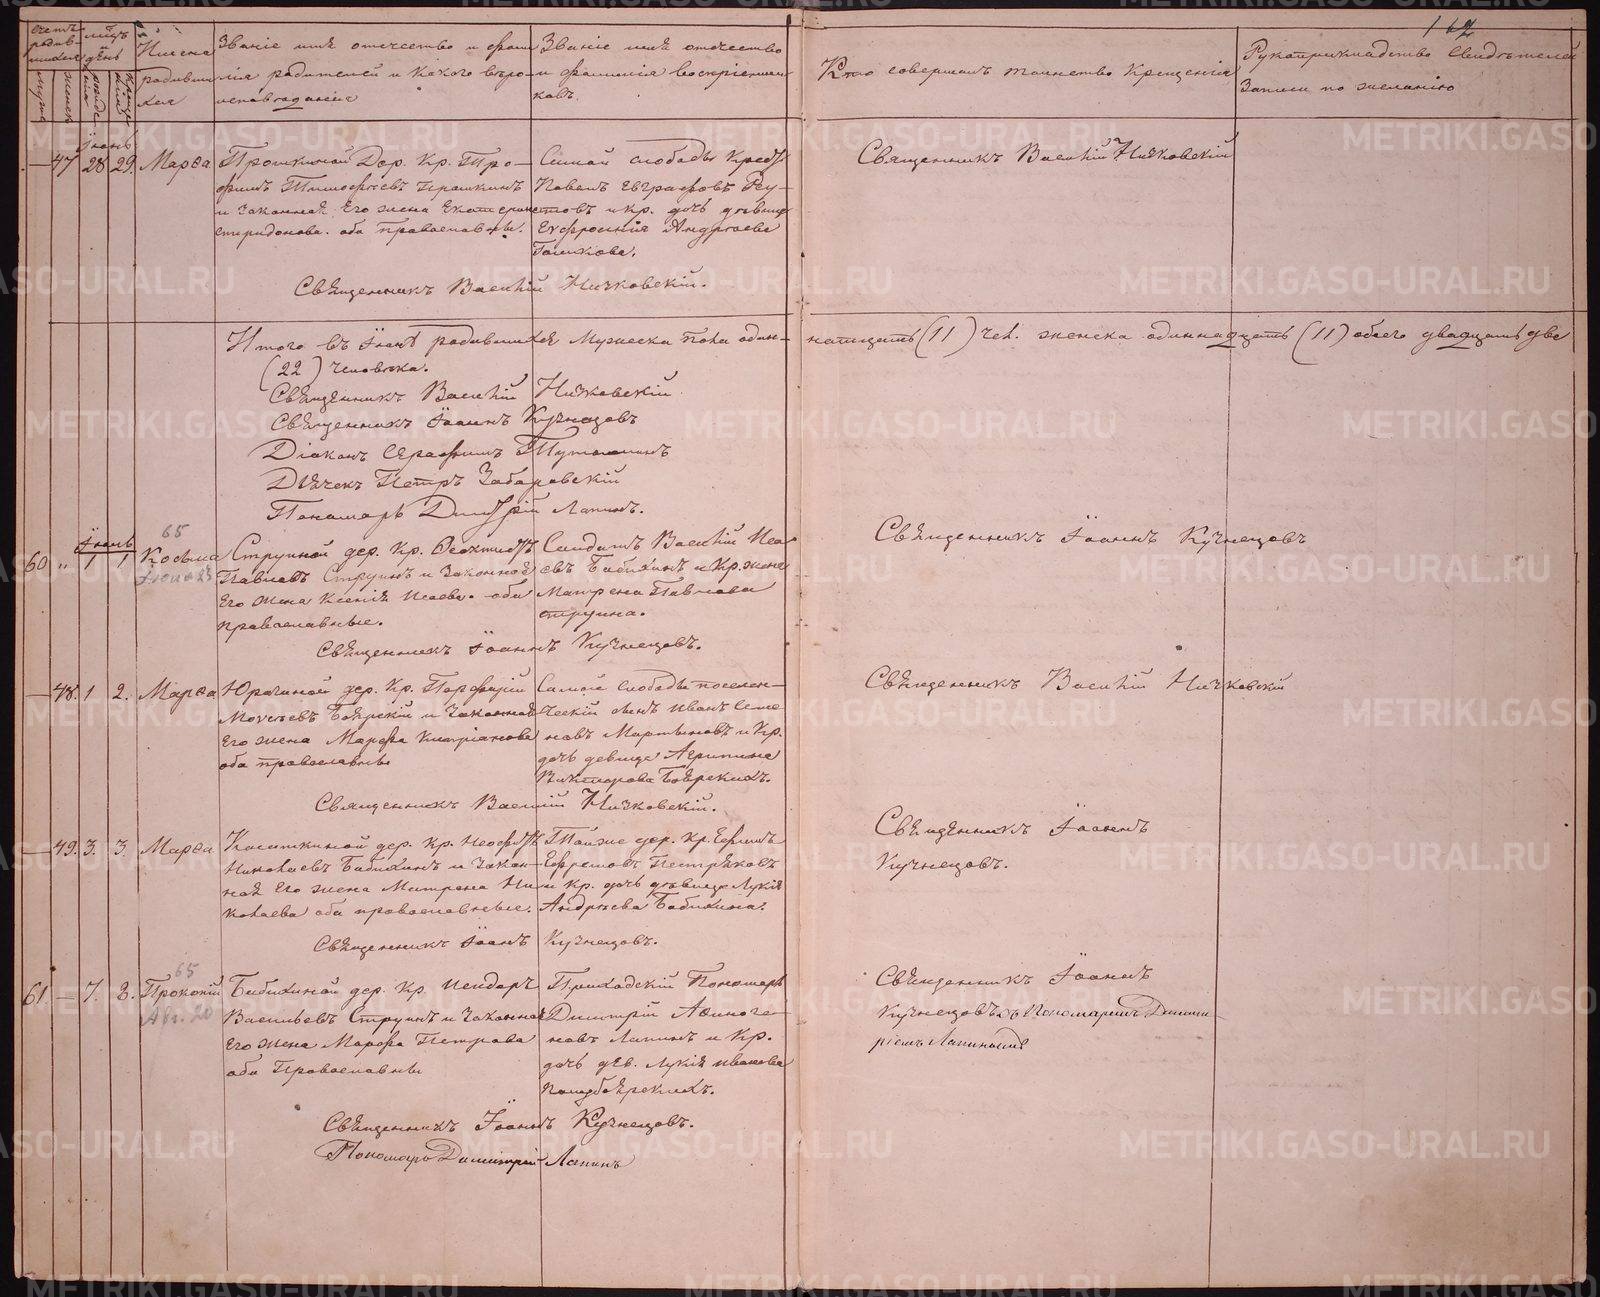 162
Счетъ родив-шихся
Мужеска
Женска
Мѣсяцъ и день
рожденія
крещенія
Имена родившихся
Званіе имя отчество и фами-
лія родителей и какого вѣро-
исповѣданія
Званіе имя отчество
и фамилія воспріемни-
ковъ.
Кто совершалъ таинство Крещенія
Рукоприкладство свидѣтелей
записи по желанію
Іюнь
— 47 28 29. Марѳа
Прошкиной Дер. Кр. Тро-
фимъ Тимофѣевъ Прошкинъ
и законная Его жена Екатерина
Спиридонова. оба православны.
Самой слободы Крест.
Павелъ Евграфовъ Реу-
товъ и Кр. дочь дѣвица
Евфросинія Андреева
Священникъ Василій Ничковскій
Священникъ Василій Ничковскій.
Итого въ Іюнѣ родившихся Мужеска пола один-
надцать (11) чел. женска одиннадцать (11) обоего двадцать две
(22) человѣка.
Священникъ Василій Ничковскій
Священникъ Іоаннъ Кузнецовъ
Діаконъ Серафимъ
Дьячекъ Петръ Заборовскій
Пономарь Димитрій Лапинъ.
Іюль
65
60 „ 1 1 Косьма
Струиной дер. Кр. Ѳеоктистъ
Павловъ Струинъ и Законная
Его жена Ксенія Исаева. оба
православные.
Солдатъ Василій Иса-
евъ Бабихинъ и Кр. жена
Матрена Павлова
Струина.
Священникъ Іоаннъ Кузнецовъ
Священникъ Іоаннъ Кузнецовъ.
— 48. 1 2. Марѳа
Юрачиной дер. Кр. Порфирій
Моисеевъ Боярскій и Законная
Его жена Марфа Кипріанова
оба православны
Самой слободы поселен-
ческій сынъ Иванъ Семе
новъ Мартыновъ и Кр.
дочь девица Агрипина
Викторова Боярскихъ.
Священникъ Василій Ничковскій
Священникъ Василій Ничковскій.
— 49. 3. 3. Марѳа
Касаткиной дер. Кр. Неофитъ
Николаевъ Бабихинъ и Закон-
ная Его жена Матрена Ни-
колаева оба православные.
Тойже дер. Кр. Ефимъ
Ефремовъ Петряковъ
и Кр. дочь дѣвица Лукія
Андреева Бабихина.
Священникъ Іоаннъ
Кузнецовъ.
Священникъ Іоаннъ Кузнецовъ.
65
61. — 7. 8. Прокопій
Авг. 20
Бабихиной дер. Кр. Исидоръ
Васильевъ Струинъ и Законная
Его жена Марфа Петрова
оба Православны
Приходскій Пономарь
Димитрій Аѳиноге-
новъ Лапинъ и Кр.
дочь дѣв. Лукія Иванова
Голубоярскихъ.
Священникъ Іоаннъ
Кузнецовъ съ Пономаремъ Димит-
ріемъ Лапинымъ
Священникъ Іоаннъ Кузнецовъ.
Пономарь Димитрій Лапинъ
METRIKI.GASO-URAL.RU